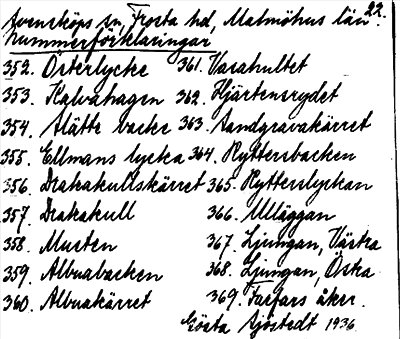 22.
Svensköps sn, Frosta hd, Malmöhus län.
Nummerförklaringar
352. Österlycke 361. Vasahultet
353. Kalvahagen 362. Hjärtensrydet
354. Slätte backe 363. Sandgravakärret
355. Ellmans lycka 364. Ryttersbacken
356. Drakakullskärret 365. Rytterslyckan
357. Drakakull 366. Ulläggan
358. Mursten 367. Ljungan, Västra
359. Albuabacken 368. Ljungan, Östra
360. Albuakärret 369. Farfars åker.
Gösta Sjöstedt 1936.